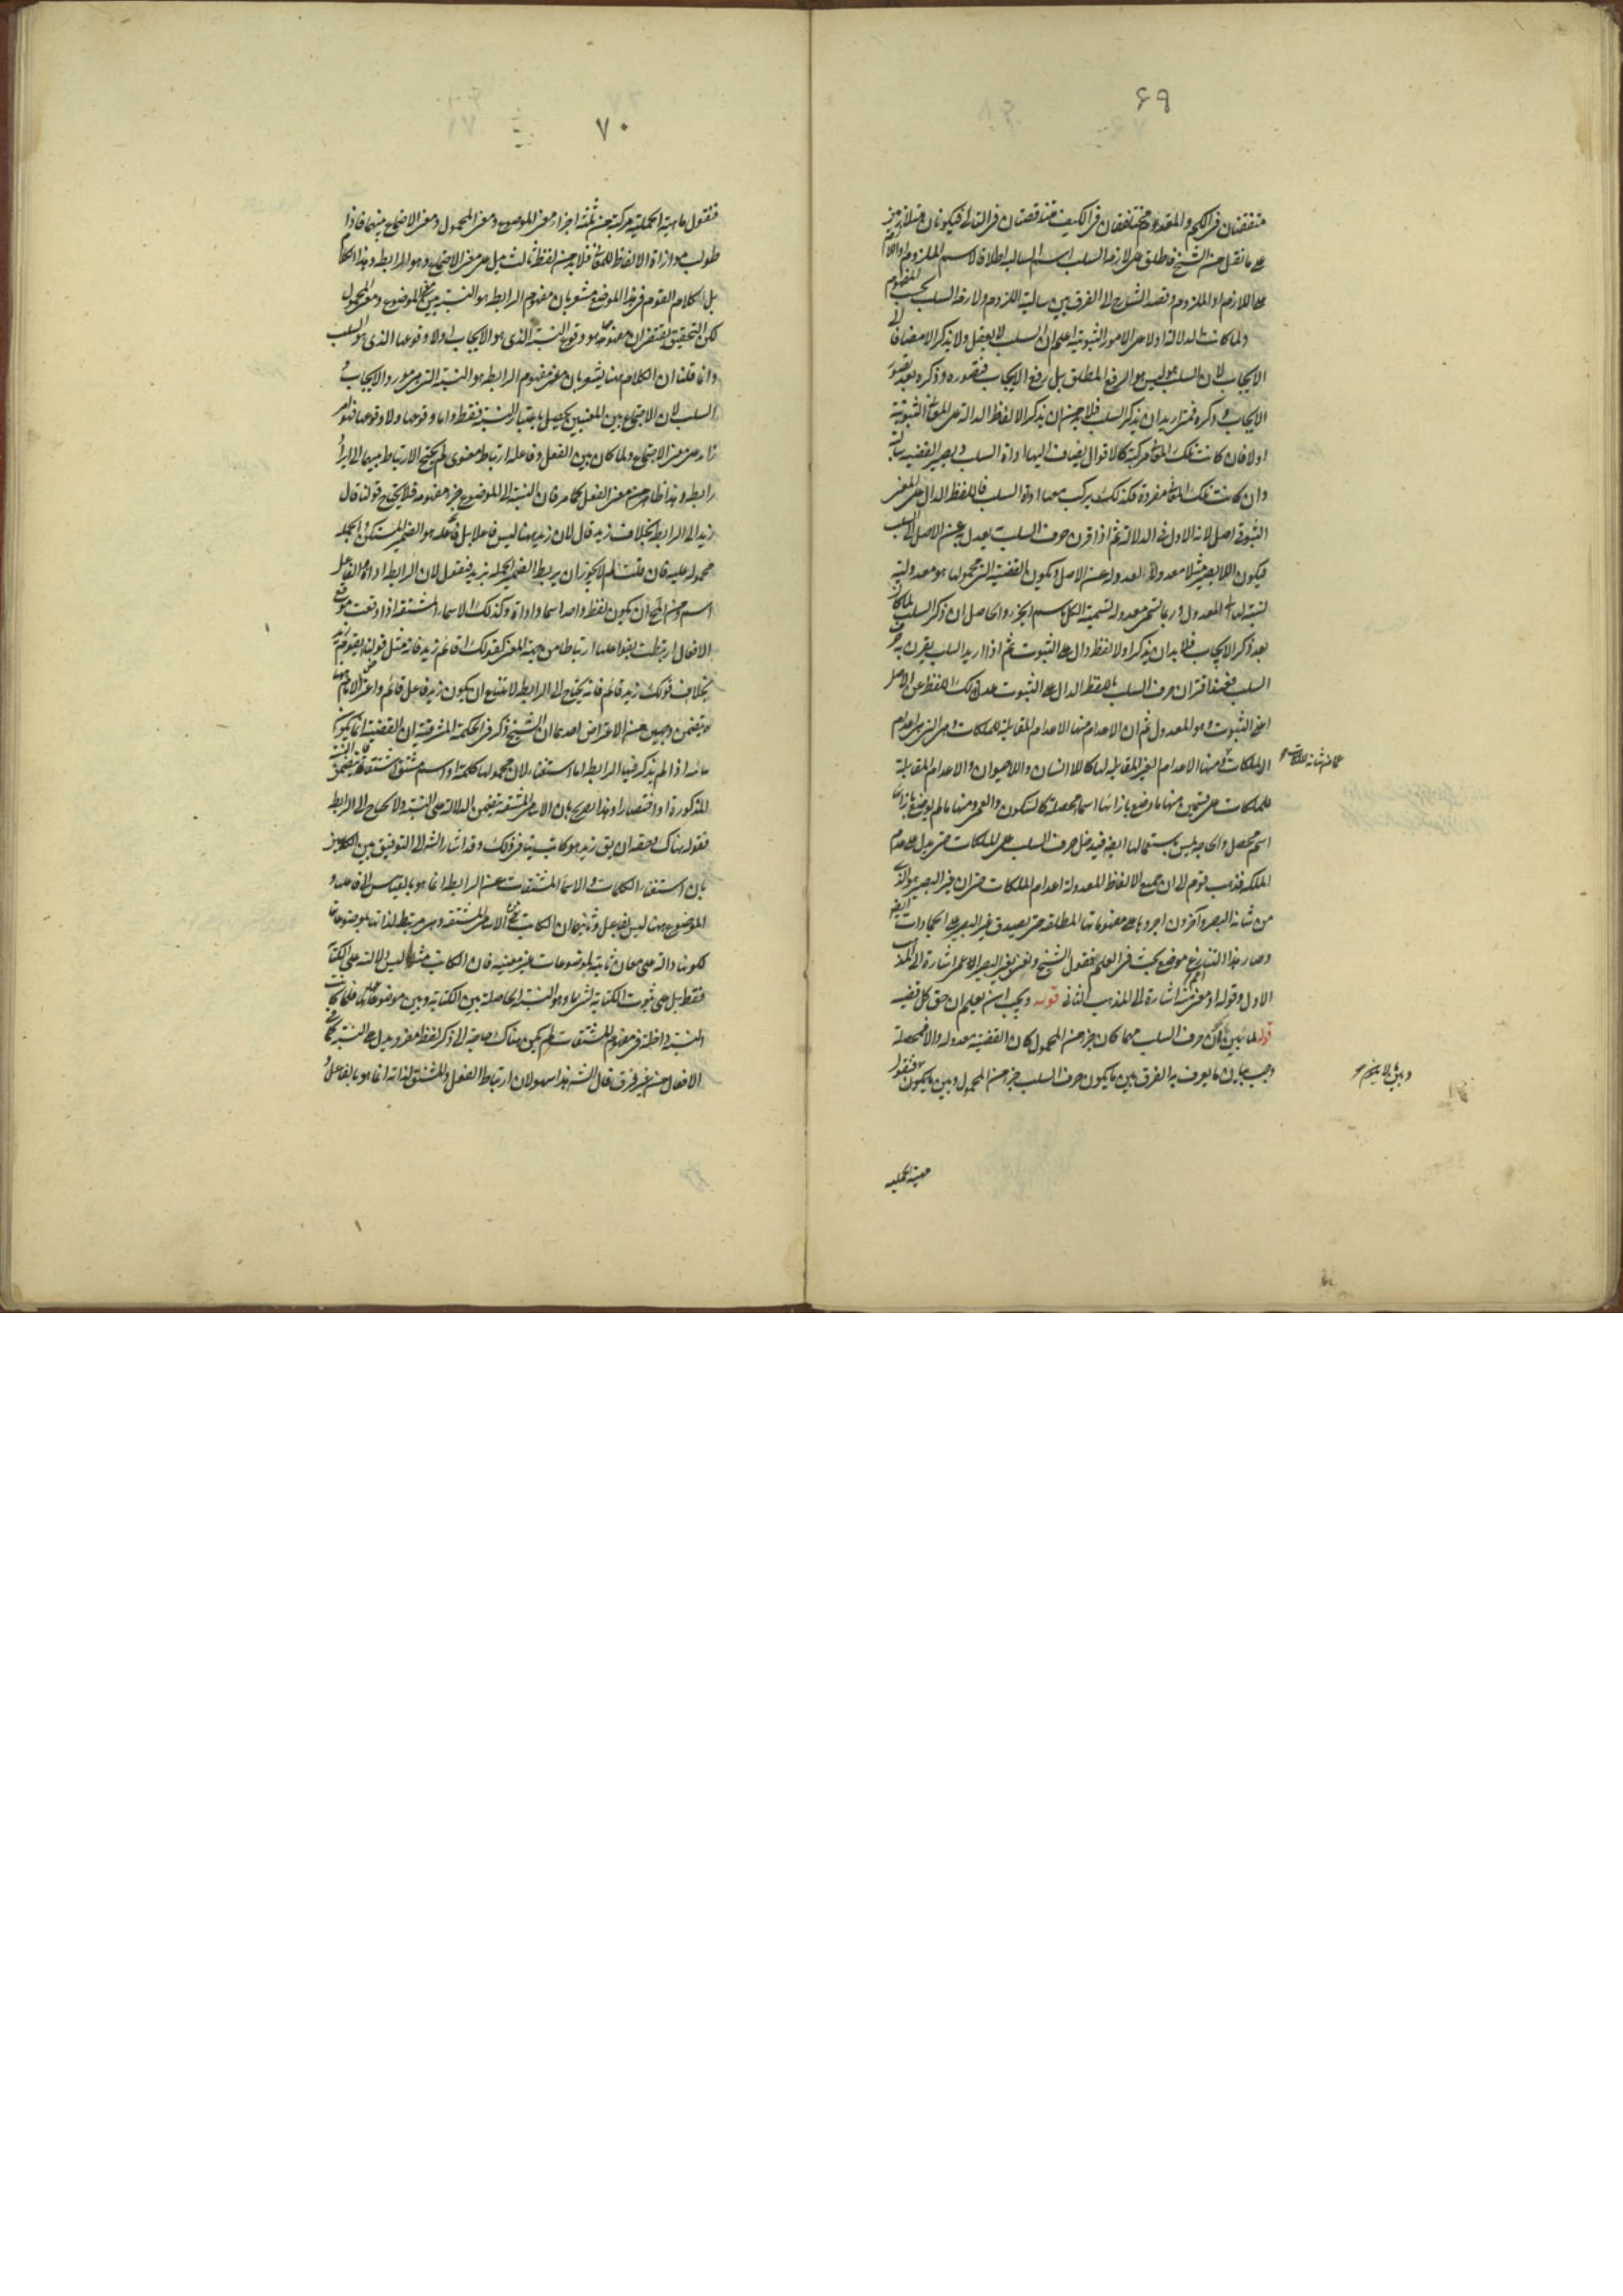 ٦٩
متفقتان فى الكم والمقدم ومختلفتان فى الكيف متناقضتان فى التالى فيكونان متلازمتين
على ما نقل من الشيخ فاطلق على لازمه السلب اسم السالبة اطلاقا لاسم الملزوم
على اللازم او الملزوم وقصد الشارح الى الفرق بين سالبة اللزوم ولازمه السلب بحسب المفهوم
ولما كانت الدلالة اولا على الامور الثبوتية اعلم ان السلب لا يعقل ولا يذكر الا مضافا الى
الايجاب لان السلب ليس هو الرفع المطلق بل رفع الايجاب فتصوره وذكره بعد تصور
الايجاب وذكره فمتى اريد ان يذكر السلب فلا بد من ان يذكر الالفاظ الدالة على المعانى الثبوتية
اولا فان كانت تلك المعانى مركبة كالاقوال يضاف اليها اداة السلب ويصير القضية سالبة
وان كانت تلك المعانى مفردة فكذلك يركب معها اداة السلب فاللفظ الدال على المعنى
الثبوتى اصل لانه الاول فى الدلالة ثم اذا قرن حرف السلب يعدل به عن الاصل الى السلب
فيكون اللابصير مثلا معدولا لعدوله عن الاصل ويكون القضية التى محمولها هو معدولية
لنسبتها الى المعدول وربما تسمى معدولة تسمية الكل باسم الجزء والحاصل ان ذكر السلب لما كان
بعد ذكر الايجاب فلا بد ان يذكر اولا لفظ دال على الثبوت ثم اذا اريد السلب يقرن به حرف
السلب فعند اقتران حرف السلب باللفظ الدال على الثبوت عدل ذلك اللفظ عن الاصل
اعنى الثبوت وهو المعدول ثم ان الاعدام منها الاعدام المقابلة للملكات وهى التى هى اعدام
الملكات ومنها الاعدام الغير المقابلة لها كاللاانسان واللاحيوان والاعدام المقابلة
عما من شانه الملكات
للملكات على قسمين منها ما وضع بازائها اسماء محصلة كالسكون والعمى ومنها ما لم يوضع بازائه
اسم محصل والحاجة ليس باستعمالها ايضا فيدخل حرف السلب على الملكات حتى يدل على عدم
الملكة فذهب قوم الى ان جميع الالفاظ المعدولة اعدام الملكات حتى ان غير البصير هو الذى
من شانه البصر وآخرون اجروها على مفهوماتها المطلقة حتى يصدق غير البصير على الجمادات ايضا
وصار هذا التنازع موضع بحث فى العلم فقول الشيخ ونعنى بغير البصير الاعمى اشارة الى المذهب
الاول وقوله او معنى اعم منه اشارة الى المذهب الثانى قوله ويجب ان يعلم ان حق كل قضية
قوله لما تبين ان حرف السلب مهما كان جزء من المحمول كان القضية معدولة والا فمحصلة
وجب بيان ما يعرف به الفرق بين ما يكون حرف السلب جزء من المحمول وبين ما يكون فنقول
وبين ما لا يكون
مهية الحملية
٧٠
فنقول ماهية الحملية مركبة من ثلثة اجزاء معنى الموضوع ومعنى المحمول ومعنى الاجتماع بينهما فاذا
طولب موازاة الالفاظ للمعانى فلا بد من لفظ ثالث يدل على معنى الاجتماع وهو الرابطة وهذا الكلام
بل كلام القوم فى هذا الموضع مشعر بان مفهوم الرابطة هو النسبة بين معنى الموضوع ومعنى المحمول
لكن التحقيق يقتضى ان مفهومها هو وقوع النسبة الذى هو الايجاب او لا وقوعها الذى هو السلب
وانما قلنا ان الكلام ههنا يشعر بان معنى مفهوم الرابطة هو النسبة التى هى مورد الايجاب و
السلب لان الاجتماع بين المعنيين يحصل باعتبار النسبة فقط واما وقوعها ولا وقوعها فهو امر
زائد على معنى الاجتماع ولما كان بين الفعل وفاعله ارتباط معنوى لم يحتج الارتباط بينهما الى ايراد
رابطة وهذا ظاهر من معنى الفعل كما مر فان النسبة الى الموضوع جزء مفهومه فلا يحتاج قولنا قال
زيد الى الرابطة بخلاف زيد قال لان زيد ههنا ليس فاعلا بل فاعله هو الضمير المستكن والجملة
محمولة عليه فان قلت لم لا يجوز ان يربط الضمير الجملة بزيد فنقول لان الرابطة اداة والفاعل
اسم ومن المحال ان يكون لفظ واحد اسما واداة وكذلك الاسماء المشتقة اذا وقعت موقع
الافعال ارتبطت بفواعلها ارتباطا من جهة المعنى كقولك اقائم زيد فانه مثل قولنا يقوم زيد
بخلاف قولك زيد قائم فانه يحتاج الى الرابطة لامتناع ان يكون زيد فاعل قائم واعتراض الامام ههنا
يتضمن وجهين من الاعتراض احدهما ان الشيخ ذكر فى الحكمة المشرقية ان القضية انما يكون
ثنائية اذا لم يذكر فيها الرابطة اما استغناء لان محمولها كلمة او اسم مشتق اشتقاقا يتضمن النسبة
المذكورة او اختصارا وهذا تصريح بان الاسماء المشتقة يتضمن الدلالة على النسبة ولا يحتاج الى الرابطة
فقوله هناك وحقه ان يق زيد هو كاتب ينافى ذلك وقد اشار الشه الى التوفيق بين الكلامين
بان استغناء الكلمات والاسماء المشتقات عن الرابطة انما هو بالقياس الى فاعلها و
الموضوع ههنا ليس بفاعل وثانيهما ان الكاتب من الاسماء المشتقة وهى مرتبطة لذاتها بموضوعات
لكونها دالة على معان ثابتة لموضوعات غير معينة فان الكاتب مثلا ليس دلالته على الكتابة
فقط بل على ثبوت الكتابة لشئ ما وهو النسبة الحاصلة بين الكتابة وبين موضوعاتها فلما كانت
النسبة داخلة فى مفهوم المشتقات لم يكن هناك حاجة الى ذكر لفظ مفرد يدل على النسبة كما فى
الافعال من غير فرق قال الشه هذا سهو لان ارتباط الفعل والمشتق لذاته انما هو بالفاعل و